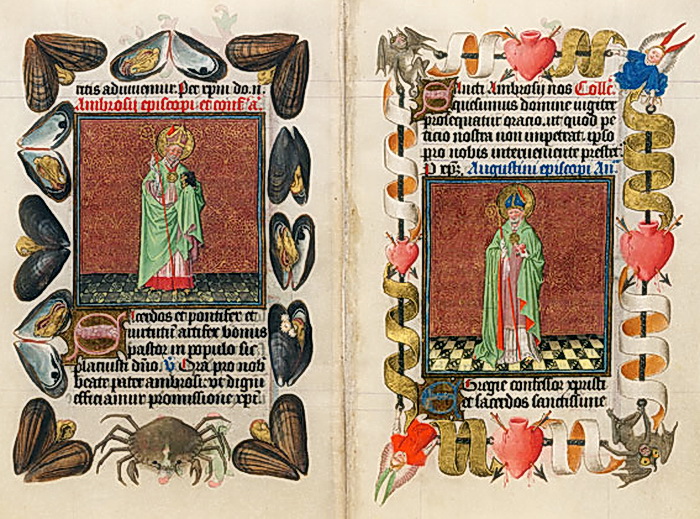 titis adveniemur. Per xpm do. n.
Ambrosii episcopi et conf. a.
Sacerdos et pontifex et
virtutum artifex bonus
pastor in populo sic
placuisti dno. V. Ora pro nob
beate pater ambrosi. vt digni
efficiamur promissione xpi.
Sancti Ambrosij nos Collc.
quesumus domine iugiter
prosequatur oracio. ut quod pe
ticio nostra non impetrat. ipso
pro nobis interueniente prestet.
P xpm. Augustini episcopi An.
Egregie confessor xpristi
et sacerdos sanctissime